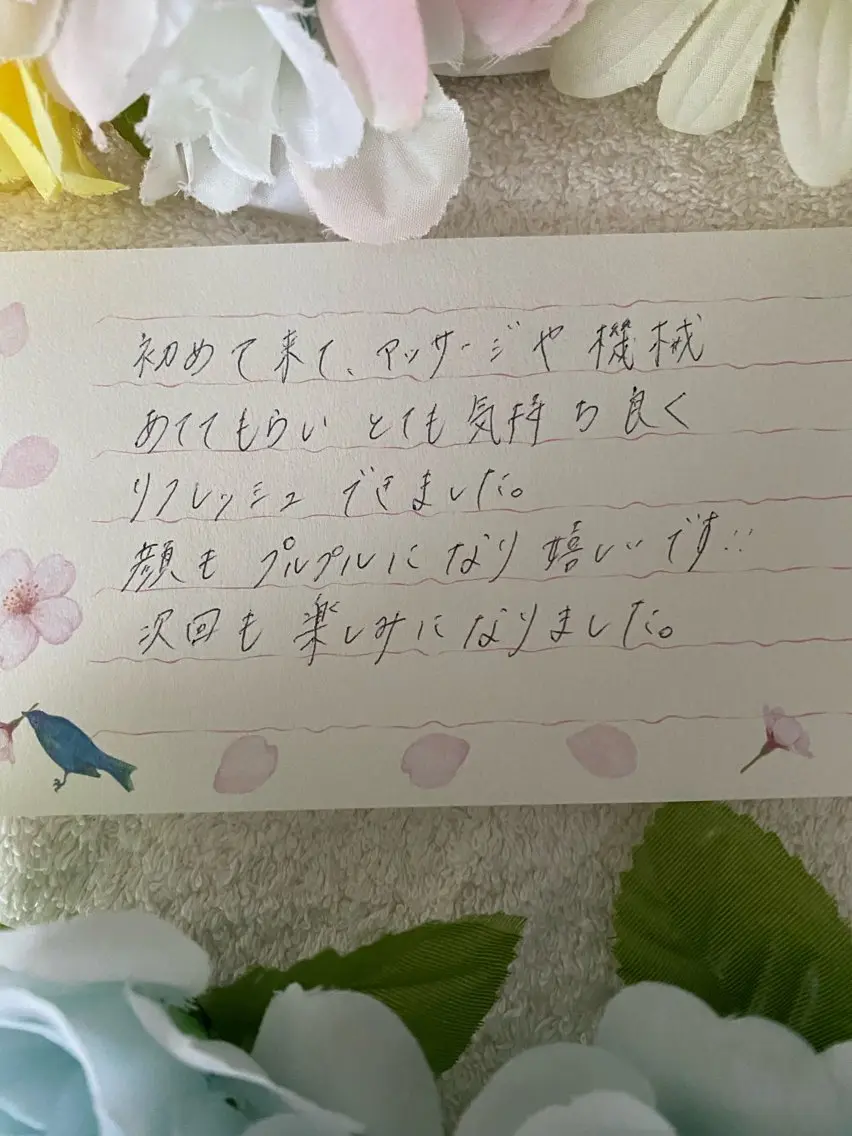 初めて来て、マッサージや機械
あててもらいとても気持ち良く
リフレッシュできました。
顔もプルプルになり嬉しいです!!
次回も楽しみになりました。